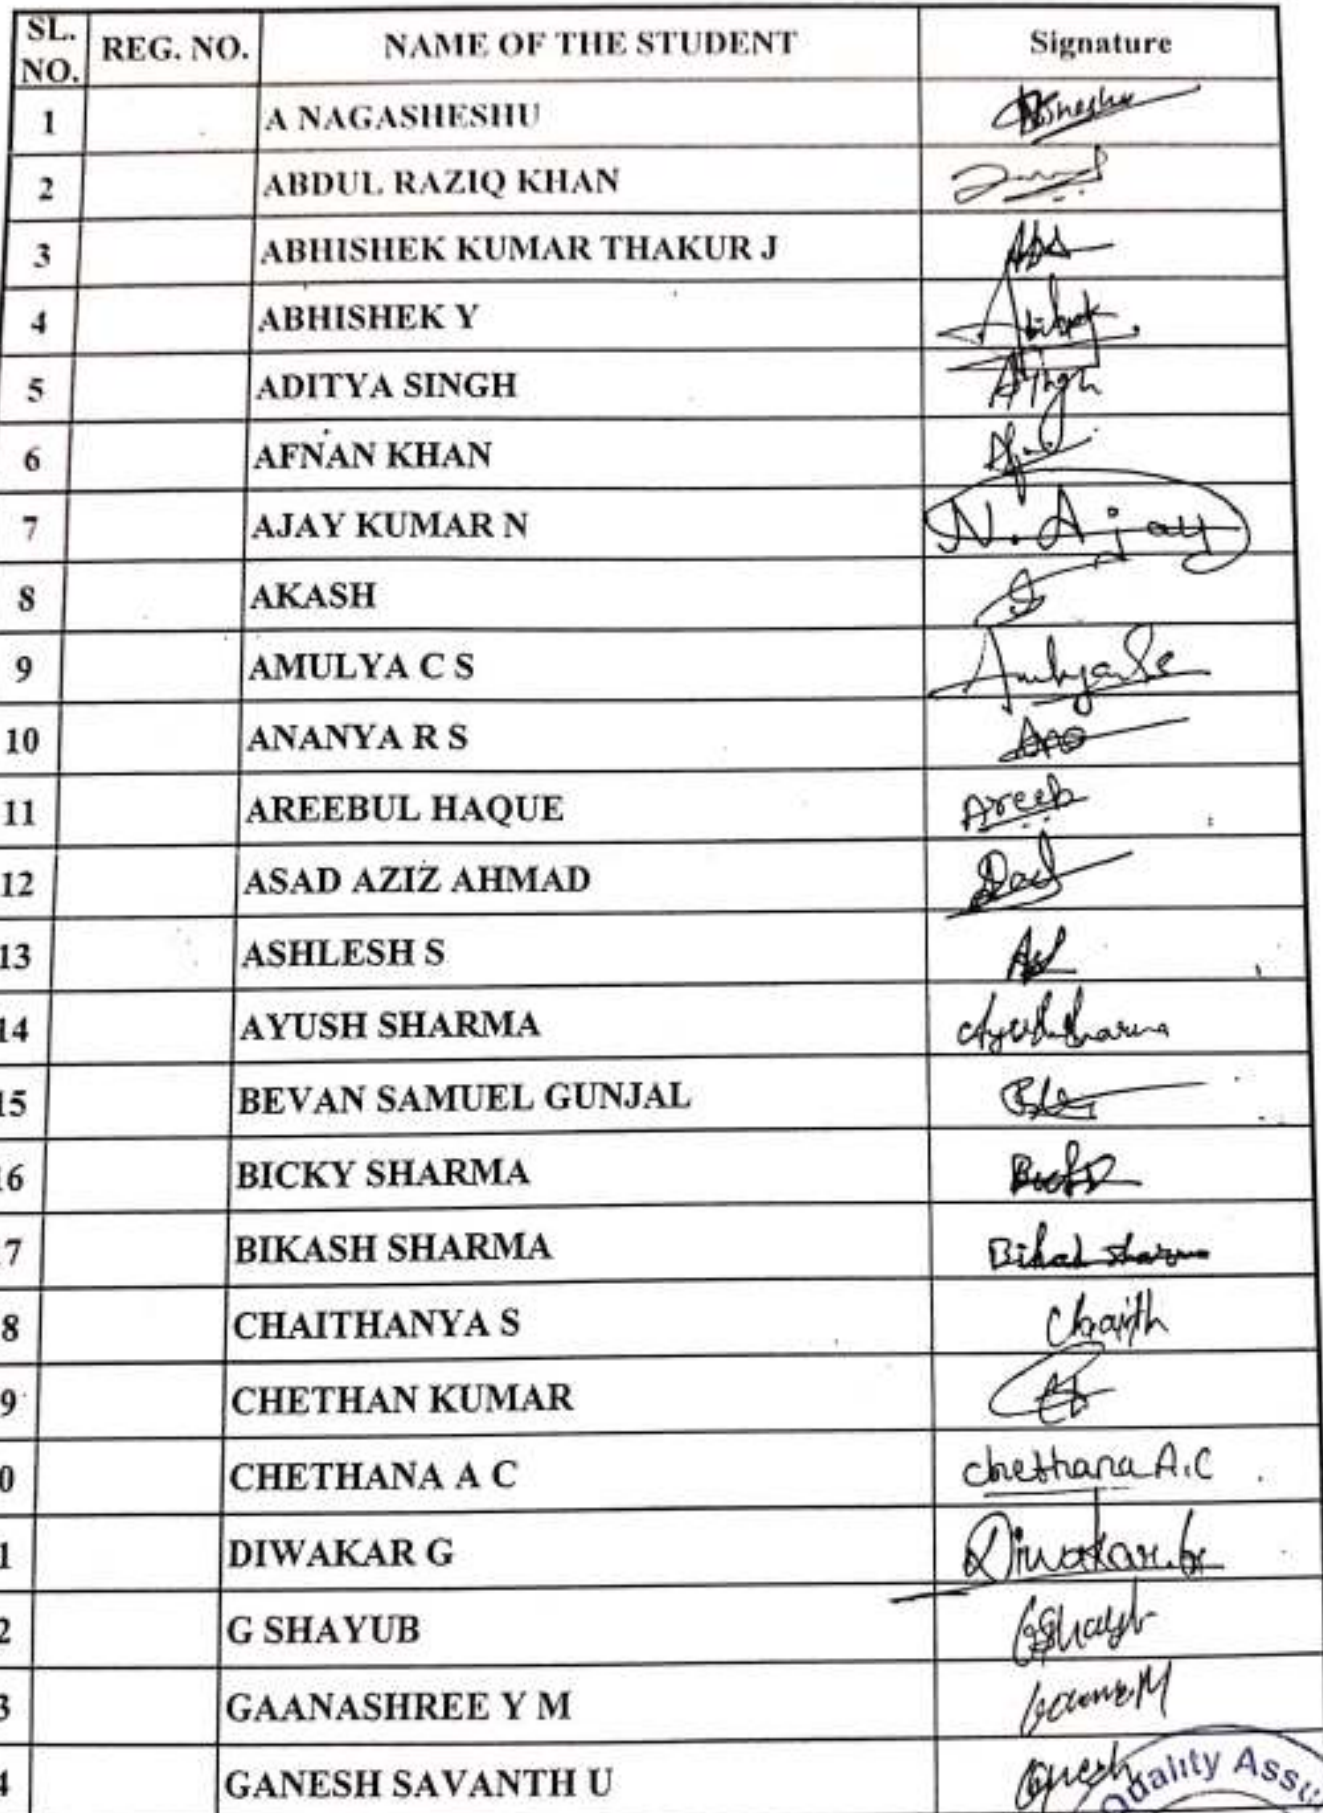 SL. NO. REG. NO. NAME OF THE STUDENT Signature
1 A NAGASHESHU
2 ABDUL RAZIQ KHAN
3 ABHISHEK KUMAR THAKUR J
4 ABHISHEK Y
5 ADITYA SINGH
6 AFNAN KHAN
7 AJAY KUMAR N N. Ajay
8 AKASH
9 AMULYA C S
10 ANANYA R S
11 AREEBUL HAQUE Areeb
12 ASAD AZIZ AHMAD
13 ASHLESH S
14 AYUSH SHARMA Ayush Sharma
15 BEVAN SAMUEL GUNJAL
16 BICKY SHARMA
7 BIKASH SHARMA
8 CHAITHANYA S Chaith
9 CHETHAN KUMAR
0 CHETHANA A C chethana A.C
1 DIWAKAR G Diwakar.G
2 G SHAYUB GShayub
3 GAANASHREE Y M
4 GANESH SAVANTH U
Quality Assu